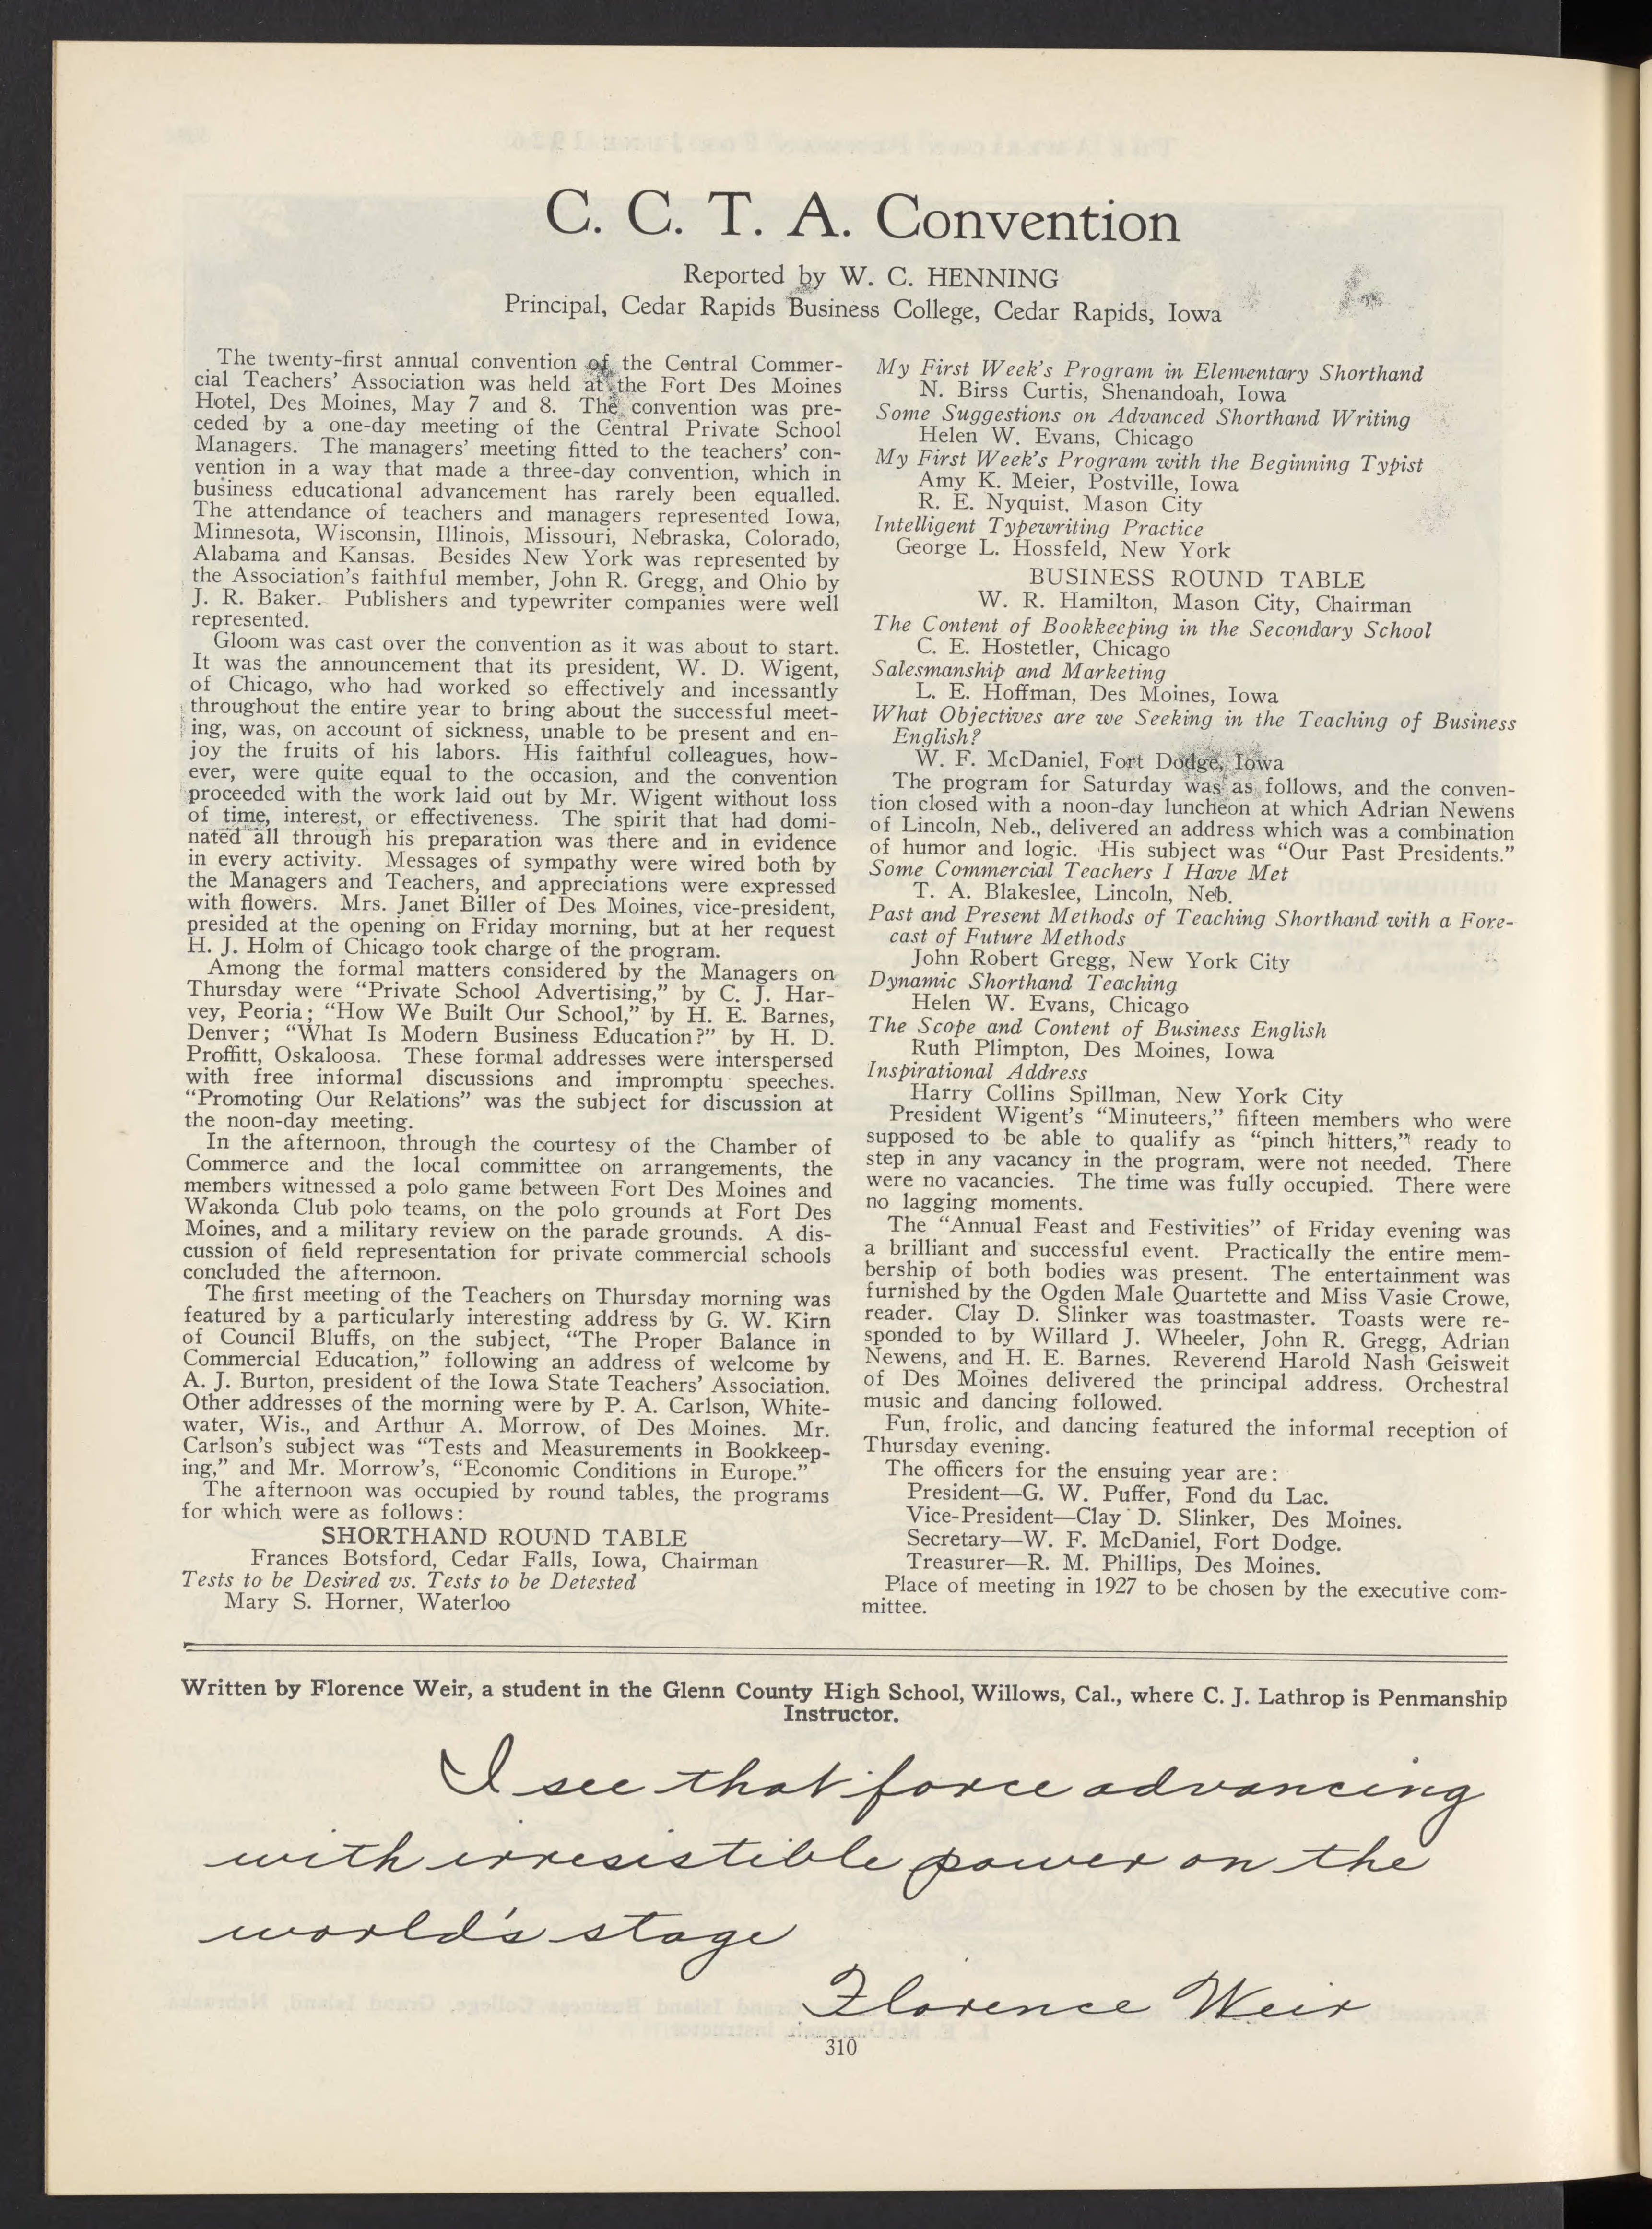 C. C. T. A. Convention
Reported by W. C. HENNING
Principal, Cedar Rapids Business College, Cedar Rapids, Iowa
The twenty-first annual convention of the Central Commer-
cial Teachers' Association was held at the Fort Des Moines
Hotel, Des Moines, May 7 and 8. The convention was pre-
ceded by a one-day meeting of the Central Private School
Managers. The managers' meeting fitted to the teachers' con-
vention in a way that made a three-day convention, which in
business educational advancement has rarely been equalled.
The attendance of teachers and managers represented Iowa,
Minnesota, Wisconsin, Illinois, Missouri, Nebraska, Colorado,
Alabama and Kansas. Besides New York was represented by
the Association's faithful member, John R. Gregg, and Ohio by
J. R. Baker. Publishers and typewriter companies were well
represented.
Gloom was cast over the convention as it was about to start.
It was the announcement that its president, W. D. Wigent,
of Chicago, who had worked so effectively and incessantly
throughout the entire year to bring about the successful meet-
ing, was, on account of sickness, unable to be present and en-
joy the fruits of his labors. His faithful colleagues, how-
ever, were quite equal to the occasion, and the convention
proceeded with the work laid out by Mr. Wigent without loss
of time, interest, or effectiveness. The spirit that had domi-
nated all through his preparation was there and in evidence
in every activity. Messages of sympathy were wired both by
the Managers and Teachers, and appreciations were expressed
with flowers. Mrs. Janet Biller of Des Moines, vice-president,
presided at the opening on Friday morning, but at her request
H. J. Holm of Chicago took charge of the program.
Among the formal matters considered by the Managers on
Thursday were "Private School Advertising," by C. J. Har-
vey, Peoria; "How We Built Our School," by H. E. Barnes,
Denver; "What Is Modern Business Education?" by H. D.
Proffitt, Oskaloosa. These formal addresses were interspersed
with free informal discussions and impromptu speeches.
"Promoting Our Relations" was the subject for discussion at
the noon-day meeting.
In the afternoon, through the courtesy of the Chamber of
Commerce and the local committee on arrangements, the
members witnessed a polo game between Fort Des Moines and
Wakonda Club polo teams, on the polo grounds at Fort Des
Moines, and a military review on the parade grounds. A dis-
cussion of field representation for private commercial schools
concluded the afternoon.
The first meeting of the Teachers on Thursday morning was
featured by a particularly interesting address by G. W. Kirn
of Council Bluffs, on the subject, "The Proper Balance in
Commercial Education," following an address of welcome by
A. J. Burton, president of the Iowa State Teachers' Association.
Other addresses of the morning were by P. A. Carlson, White-
water, Wis., and Arthur A. Morrow, of Des Moines. Mr.
Carlson's subject was "Tests and Measurements in Bookkeep-
ing," and Mr. Morrow's, "Economic Conditions in Europe."
The afternoon was occupied by round tables, the programs
for which were as follows:
SHORTHAND ROUND TABLE
Frances Botsford, Cedar Falls, Iowa, Chairman
Tests to be Desired vs. Tests to be Detested
Mary S. Horner, Waterloo
My First Week's Program in Elementary Shorthand
N. Birss Curtis, Shenandoah, Iowa
Some Suggestions on Advanced Shorthand Writing
Helen W. Evans, Chicago
My First Week's Program with the Beginning Typist
Amy K. Meier, Postville, Iowa
R. E. Nyquist, Mason City
Intelligent Typewriting Practice
George L. Hossfeld, New York
BUSINESS ROUND TABLE
W. R. Hamilton, Mason City, Chairman
The Content of Bookkeeping in the Secondary School
C. E. Hostetler, Chicago
Salesmanship and Marketing
L. E. Hoffman, Des Moines, Iowa
What Objectives are we Seeking in the Teaching of Business
English?
W. F. McDaniel, Fort Dodge, Iowa
The program for Saturday was as follows, and the conven-
tion closed with a noon-day luncheon at which Adrian Newens
of Lincoln, Neb., delivered an address which was a combination
of humor and logic. His subject was "Our Past Presidents."
Some Commercial Teachers I Have Met
T. A. Blakeslee, Lincoln, Neb.
Past and Present Methods of Teaching Shorthand with a Fore-
cast of Future Methods
John Robert Gregg, New York City
Dynamic Shorthand Teaching
Helen W. Evans, Chicago
The Scope and Content of Business English
Ruth Plimpton, Des Moines, Iowa
Inspirational Address
Harry Collins Spillman, New York City
President Wigent's "Minuteers," fifteen members who were
supposed to be able to qualify as "pinch hitters," ready to
step in any vacancy in the program, were not needed. There
were no vacancies. The time was fully occupied. There were
no lagging moments.
The "Annual Feast and Festivities" of Friday evening was
a brilliant and successful event. Practically the entire mem-
bership of both bodies was present. The entertainment was
furnished by the Ogden Male Quartette and Miss Vasie Crowe,
reader. Clay D. Slinker was toastmaster. Toasts were re-
sponded to by Willard J. Wheeler, John R. Gregg, Adrian
Newens, and H. E. Barnes. Reverend Harold Nash Geisweit
of Des Moines delivered the principal address. Orchestral
music and dancing followed.
Fun, frolic, and dancing featured the informal reception of
Thursday evening.
The officers for the ensuing year are:
President—G. W. Puffer, Fond du Lac.
Vice-President—Clay D. Slinker, Des Moines.
Secretary—W. F. McDaniel, Fort Dodge.
Treasurer—R. M. Phillips, Des Moines.
Place of meeting in 1927 to be chosen by the executive com-
mittee.
Written by Florence Weir, a student in the Glenn County High School, Willows, Cal., where C. J. Lathrop is Penmanship
Instructor.
I see that force advancing
with irresistible power on the
world's stage
Florence Weir
310